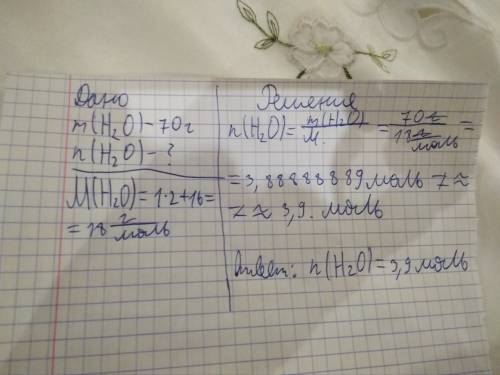 Дано
m(H₂O) - 70 г
n(H₂O) - ?
M(H₂O) = 1·2+16=
= 18 г/моль
Решение
n(H₂O) = m(H₂O)/M = 70 г/18 г/моль =
= 3,88888889 моль ≈
≈ 3,9 моль
Ответ: n(H₂O) = 3,9 моль